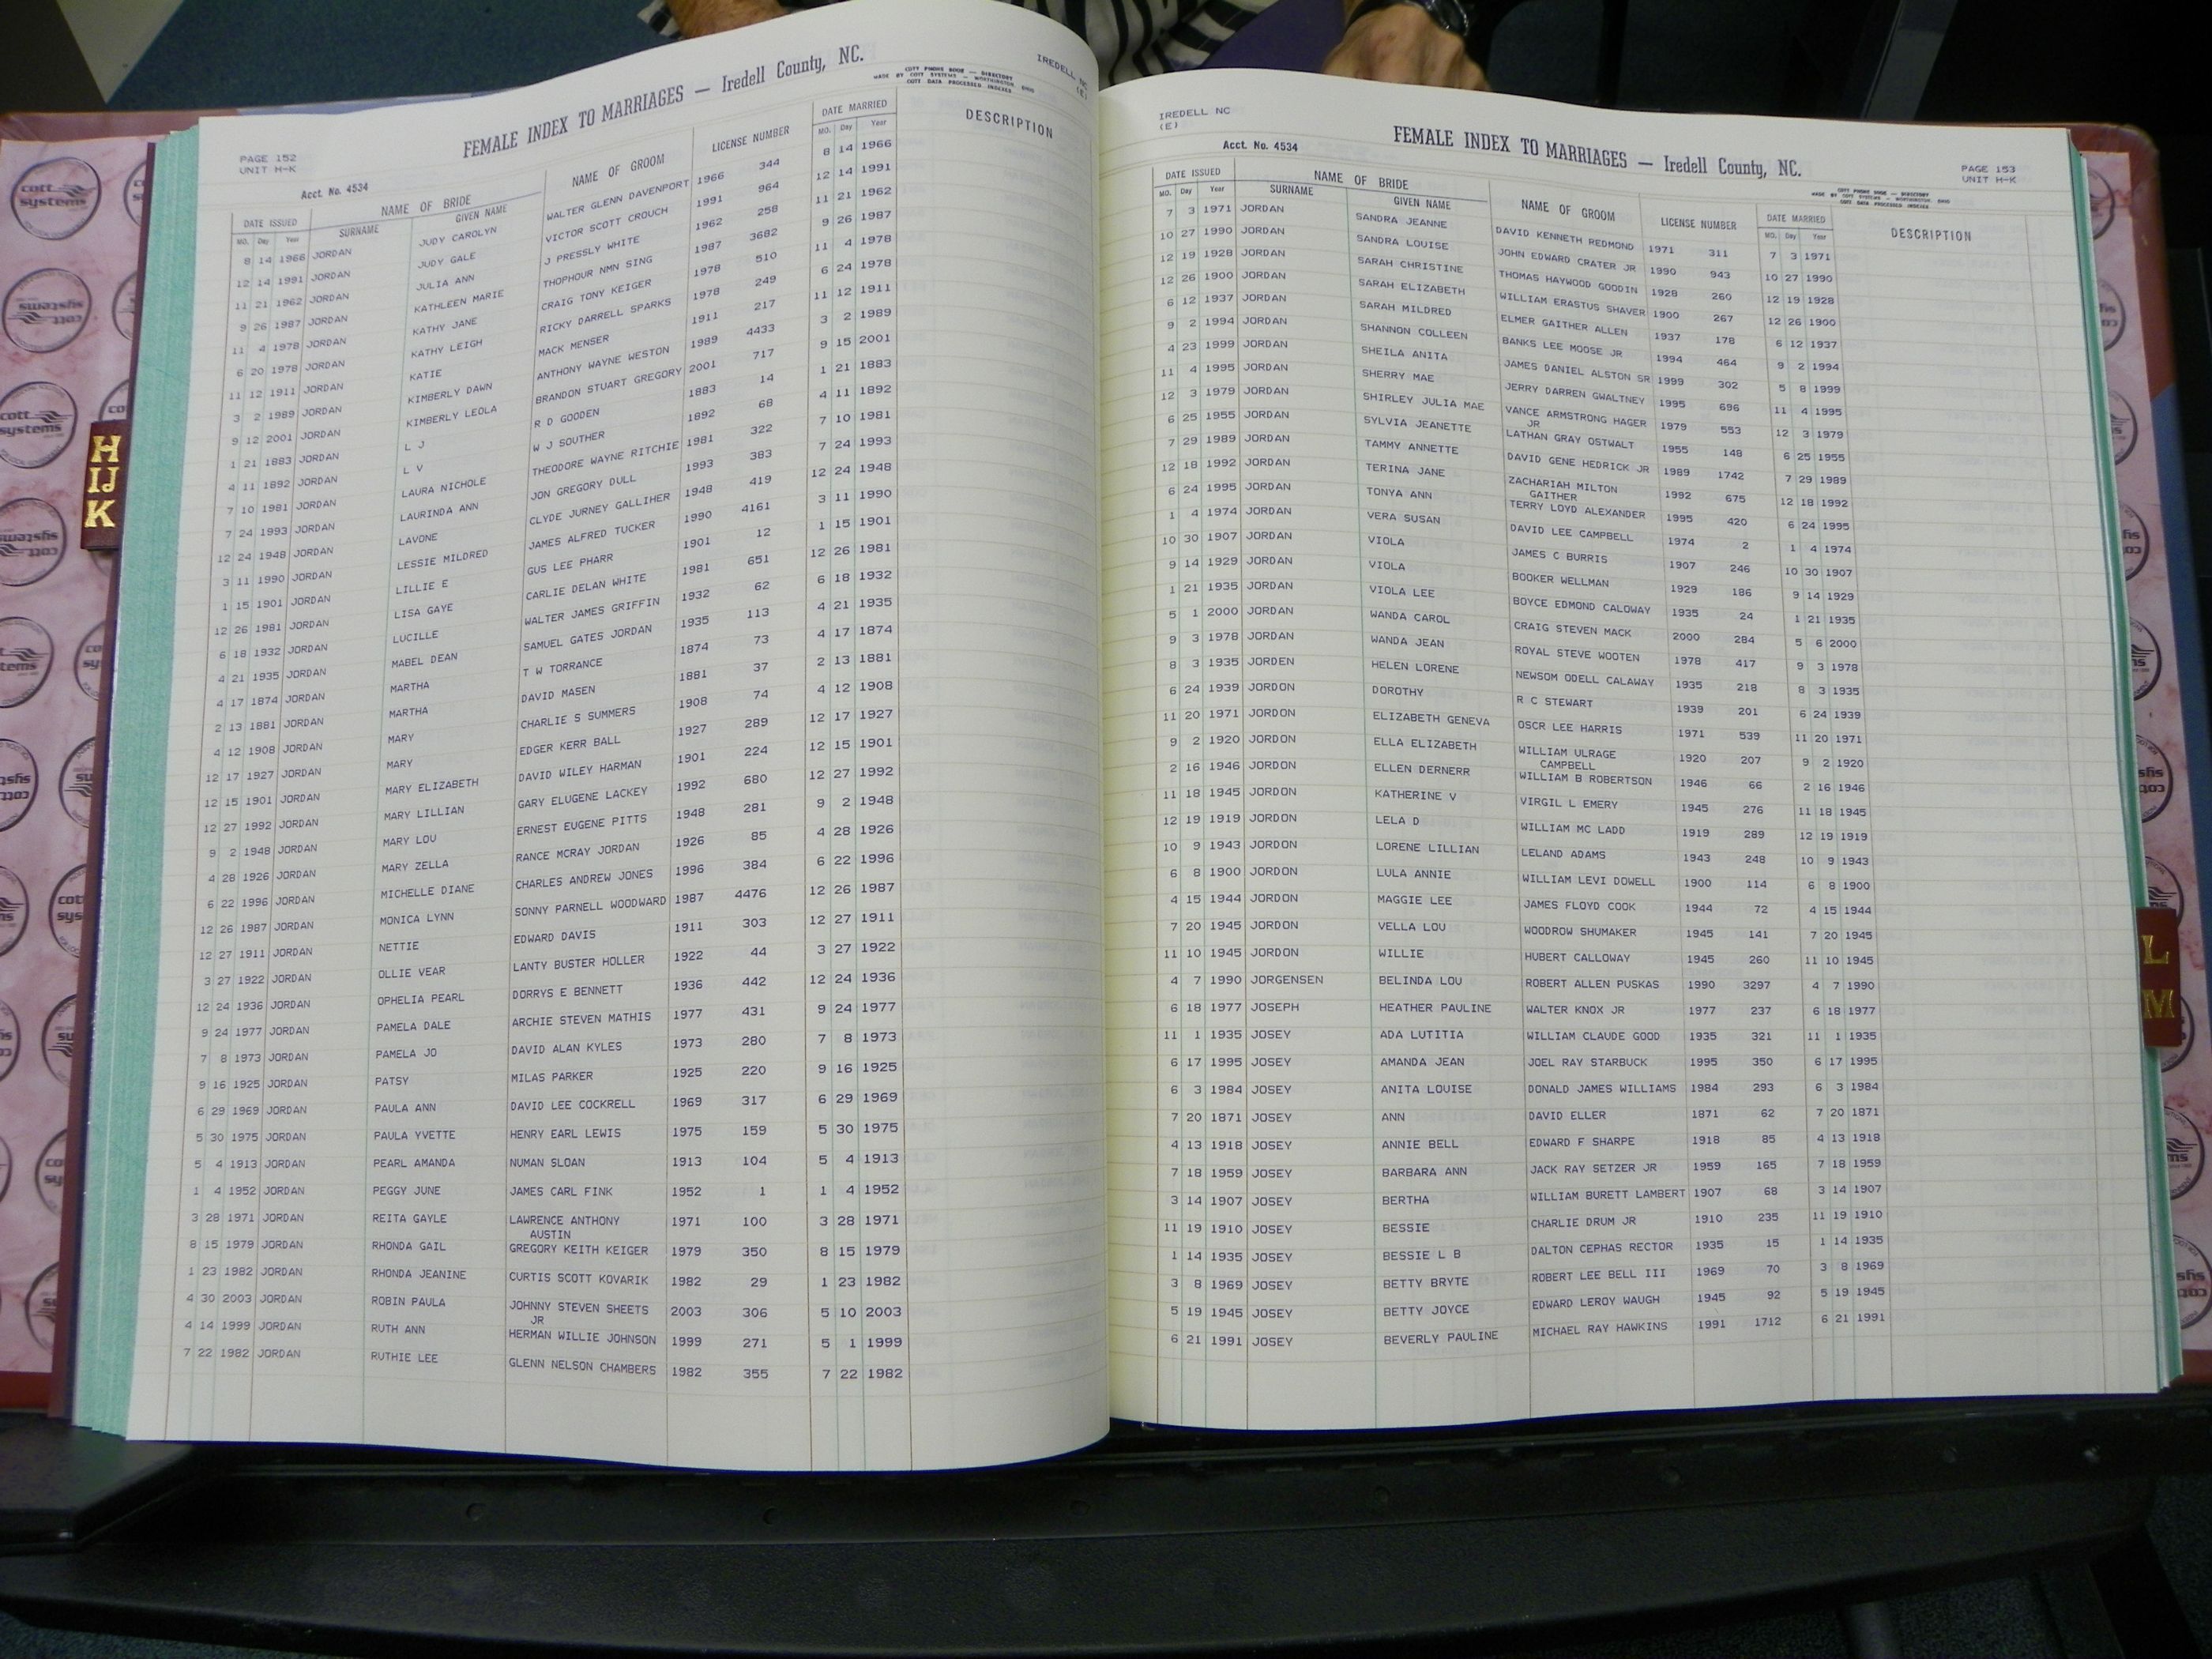 PAGE 152
UNIT H-K
FEMALE INDEX TO MARRIAGES — Iredell County, NC.
COTT FINDEX BOOK — DIRECTORY
MADE BY COTT SYSTEMS — WORTHINGTON, OHIO
COTT DATA PROCESSED INDEXES
IREDELL NC
(E)
Acct. No. 4534
DATE ISSUED NAME OF BRIDE NAME OF GROOM LICENSE NUMBER DATE MARRIED DESCRIPTION
MO. Day Year SURNAME GIVEN NAME MO. Day Year
8 14 1966 JORDAN JUDY CAROLYN WALTER GLENN DAVENPORT 1966 344 8 14 1966
12 14 1991 JORDAN JUDY GALE VICTOR SCOTT CROUCH 1991 964 12 14 1991
11 21 1962 JORDAN JULIA ANN J PRESSLY WHITE 1962 258 11 21 1962
9 26 1987 JORDAN KATHLEEN MARIE THOPHOUR NMN SING 1987 3682 9 26 1987
11 4 1978 JORDAN KATHY JANE CRAIG TONY KEIGER 1978 510 11 4 1978
6 20 1978 JORDAN KATHY LEIGH RICKY DARRELL SPARKS 1978 249 6 24 1978
11 12 1911 JORDAN KATIE MACK MENSER 1911 217 11 12 1911
3 2 1989 JORDAN KIMBERLY DAWN ANTHONY WAYNE WESTON 1989 4433 3 2 1989
9 12 2001 JORDAN KIMBERLY LEOLA BRANDON STUART GREGORY 2001 717 9 15 2001
1 21 1883 JORDAN L J R D GOODEN 1883 14 1 21 1883
4 11 1892 JORDAN L V W J SOUTHER 1892 68 4 11 1892
7 10 1981 JORDAN LAURA NICHOLE THEODORE WAYNE RITCHIE 1981 322 7 10 1981
7 24 1993 JORDAN LAURINDA ANN JON GREGORY DULL 1993 383 7 24 1993
12 24 1948 JORDAN LAVONE CLYDE JURNEY GALLIHER 1948 419 12 24 1948
3 11 1990 JORDAN LESSIE MILDRED JAMES ALFRED TUCKER 1990 4161 3 11 1990
1 15 1901 JORDAN LILLIE E GUS LEE PHARR 1901 12 1 15 1901
12 26 1981 JORDAN LISA GAYE CARLIE DELAN WHITE 1981 651 12 26 1981
6 18 1932 JORDAN LUCILLE WALTER JAMES GRIFFIN 1932 62 6 18 1932
4 21 1935 JORDAN MABEL DEAN SAMUEL GATES JORDAN 1935 113 4 21 1935
4 17 1874 JORDAN MARTHA T W TORRANCE 1874 73 4 17 1874
2 13 1881 JORDAN MARTHA DAVID MASEN 1881 37 2 13 1881
4 12 1908 JORDAN MARY CHARLIE S SUMMERS 1908 74 4 12 1908
12 17 1927 JORDAN MARY EDGER KERR BALL 1927 289 12 17 1927
12 15 1901 JORDAN MARY ELIZABETH DAVID WILEY HARMAN 1901 224 12 15 1901
12 27 1992 JORDAN MARY LILLIAN GARY ELUGENE LACKEY 1992 680 12 27 1992
9 2 1948 JORDAN MARY LOU ERNEST EUGENE PITTS 1948 281 9 2 1948
4 28 1926 JORDAN MARY ZELLA RANCE MCRAY JORDAN 1926 85 4 28 1926
6 22 1996 JORDAN MICHELLE DIANE CHARLES ANDREW JONES 1996 384 6 22 1996
12 26 1987 JORDAN MONICA LYNN SONNY PARNELL WOODWARD 1987 4476 12 26 1987
12 27 1911 JORDAN NETTIE EDWARD DAVIS 1911 303 12 27 1911
3 27 1922 JORDAN OLLIE VEAR LANTY BUSTER HOLLER 1922 44 3 27 1922
12 24 1936 JORDAN OPHELIA PEARL DORRYS E BENNETT 1936 442 12 24 1936
9 24 1977 JORDAN PAMELA DALE ARCHIE STEVEN MATHIS 1977 431 9 24 1977
7 8 1973 JORDAN PAMELA JO DAVID ALAN KYLES 1973 280 7 8 1973
9 16 1925 JORDAN PATSY MILAS PARKER 1925 220 9 16 1925
6 29 1969 JORDAN PAULA ANN DAVID LEE COCKRELL 1969 317 6 29 1969
5 30 1975 JORDAN PAULA YVETTE HENRY EARL LEWIS 1975 159 5 30 1975
5 4 1913 JORDAN PEARL AMANDA NUMAN SLOAN 1913 104 5 4 1913
1 4 1952 JORDAN PEGGY JUNE JAMES CARL FINK 1952 1 1 4 1952
3 28 1971 JORDAN REITA GAYLE LAWRENCE ANTHONY 1971 100 3 28 1971
AUSTIN
8 15 1979 JORDAN RHONDA GAIL GREGORY KEITH KEIGER 1979 350 8 15 1979
1 23 1982 JORDAN RHONDA JEANINE CURTIS SCOTT KOVARIK 1982 29 1 23 1982
4 30 2003 JORDAN ROBIN PAULA JOHNNY STEVEN SHEETS 2003 306 5 10 2003
JR
4 14 1999 JORDAN RUTH ANN HERMAN WILLIE JOHNSON 1999 271 5 1 1999
7 22 1982 JORDAN RUTHIE LEE GLENN NELSON CHAMBERS 1982 355 7 22 1982
H
IJ
K
IREDELL NC
(E)
Acct. No. 4534
FEMALE INDEX TO MARRIAGES — Iredell County, NC.
PAGE 153
UNIT H-K
COTT FINDEX BOOK — DIRECTORY
MADE BY COTT SYSTEMS — WORTHINGTON, OHIO
COTT DATA PROCESSED INDEXES
DATE ISSUED NAME OF BRIDE NAME OF GROOM LICENSE NUMBER DATE MARRIED DESCRIPTION
MO. Day Year SURNAME GIVEN NAME MO. Day Year
7 3 1971 JORDAN SANDRA JEANNE DAVID KENNETH REDMOND 1971 311 7 3 1971
10 27 1990 JORDAN SANDRA LOUISE JOHN EDWARD CRATER JR 1990 943 10 27 1990
12 19 1928 JORDAN SARAH CHRISTINE THOMAS HAYWOOD GOODIN 1928 260 12 19 1928
12 26 1900 JORDAN SARAH ELIZABETH WILLIAM ERASTUS SHAVER 1900 267 12 26 1900
6 12 1937 JORDAN SARAH MILDRED ELMER GAITHER ALLEN 1937 178 6 12 1937
9 2 1994 JORDAN SHANNON COLLEEN BANKS LEE MOOSE JR 1994 464 9 2 1994
4 23 1999 JORDAN SHEILA ANITA JAMES DANIEL ALSTON SR 1999 302 5 8 1999
11 4 1995 JORDAN SHERRY MAE JERRY DARREN GWALTNEY 1995 696 11 4 1995
12 3 1979 JORDAN SHIRLEY JULIA MAE VANCE ARMSTRONG HAGER 1979 553 12 3 1979
JR
6 25 1955 JORDAN SYLVIA JEANETTE LATHAN GRAY OSTWALT 1955 148 6 25 1955
7 29 1989 JORDAN TAMMY ANNETTE DAVID GENE HEDRICK JR 1989 1742 7 29 1989
12 18 1992 JORDAN TERINA JANE ZACHARIAH MILTON 1992 675 12 18 1992
GAITHER
6 24 1995 JORDAN TONYA ANN TERRY LOYD ALEXANDER 1995 420 6 24 1995
1 4 1974 JORDAN VERA SUSAN DAVID LEE CAMPBELL 1974 2 1 4 1974
10 30 1907 JORDAN VIOLA JAMES C BURRIS 1907 246 10 30 1907
9 14 1929 JORDAN VIOLA BOOKER WELLMAN 1929 186 9 14 1929
1 21 1935 JORDAN VIOLA LEE BOYCE EDMOND CALOWAY 1935 24 1 21 1935
5 1 2000 JORDAN WANDA CAROL CRAIG STEVEN MACK 2000 284 5 6 2000
9 3 1978 JORDAN WANDA JEAN ROYAL STEVE WOOTEN 1978 417 9 3 1978
8 3 1935 JORDEN HELEN LORENE NEWSOM ODELL CALAWAY 1935 218 8 3 1935
6 24 1939 JORDON DOROTHY R C STEWART 1939 201 6 24 1939
11 20 1971 JORDON ELIZABETH GENEVA OSCR LEE HARRIS 1971 539 11 20 1971
9 2 1920 JORDON ELLA ELIZABETH WILLIAM ULRAGE 1920 207 9 2 1920
CAMPBELL
2 16 1946 JORDON ELLEN DERNERR WILLIAM B ROBERTSON 1946 66 2 16 1946
11 18 1945 JORDON KATHERINE V VIRGIL L EMERY 1945 276 11 18 1945
12 19 1919 JORDON LELA D WILLIAM MC LADD 1919 289 12 19 1919
10 9 1943 JORDON LORENE LILLIAN LELAND ADAMS 1943 248 10 9 1943
6 8 1900 JORDON LULA ANNIE WILLIAM LEVI DOWELL 1900 114 6 8 1900
4 15 1944 JORDON MAGGIE LEE JAMES FLOYD COOK 1944 72 4 15 1944
7 20 1945 JORDON VELLA LOU WOODROW SHUMAKER 1945 141 7 20 1945
11 10 1945 JORDON WILLIE HUBERT CALLOWAY 1945 260 11 10 1945
4 7 1990 JORGENSEN BELINDA LOU ROBERT ALLEN PUSKAS 1990 3297 4 7 1990
6 18 1977 JOSEPH HEATHER PAULINE WALTER KNOX JR 1977 237 6 18 1977
11 1 1935 JOSEY ADA LUTITIA WILLIAM CLAUDE GOOD 1935 321 11 1 1935
6 17 1995 JOSEY AMANDA JEAN JOEL RAY STARBUCK 1995 350 6 17 1995
6 3 1984 JOSEY ANITA LOUISE DONALD JAMES WILLIAMS 1984 293 6 3 1984
7 20 1871 JOSEY ANN DAVID ELLER 1871 62 7 20 1871
4 13 1918 JOSEY ANNIE BELL EDWARD F SHARPE 1918 85 4 13 1918
7 18 1959 JOSEY BARBARA ANN JACK RAY SETZER JR 1959 165 7 18 1959
3 14 1907 JOSEY BERTHA WILLIAM BURETT LAMBERT 1907 68 3 14 1907
11 19 1910 JOSEY BESSIE CHARLIE DRUM JR 1910 235 11 19 1910
1 14 1935 JOSEY BESSIE L B DALTON CEPHAS RECTOR 1935 15 1 14 1935
3 8 1969 JOSEY BETTY BRYTE ROBERT LEE BELL III 1969 70 3 8 1969
5 19 1945 JOSEY BETTY JOYCE EDWARD LEROY WAUGH 1945 92 5 19 1945
6 21 1991 JOSEY BEVERLY PAULINE MICHAEL RAY HAWKINS 1991 1712 6 21 1991
L
M
cott
systems